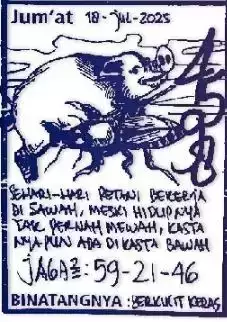 Jum'at 18-Jul-2025
4598
SEHARI-HARI PETANI BEKERJA
DI SAWAH, MESKI HIDUPNYA
TAK PERNAH MEWAH, KASTA
NYA PUN ADA DI KASTA BAWAH
JAGA2: 59-21-46
BINATANGNYA : BERKUKIT KERAS